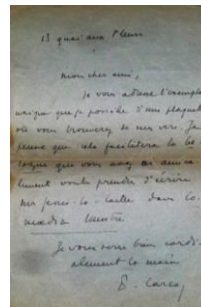 13 quai aux Fleurs
mon cher ami,
je vous adresse l'exemplaire
unique que je possède d'une plaquette
où vous trouverez de mes vers. Je
pense que cela facilitera la be
sogne que vous avez si amica
lement voulu prendre d'écrire
sur
dans Co
moedia illustré
Je vous serre bien cordi
alement la main
F. Carco